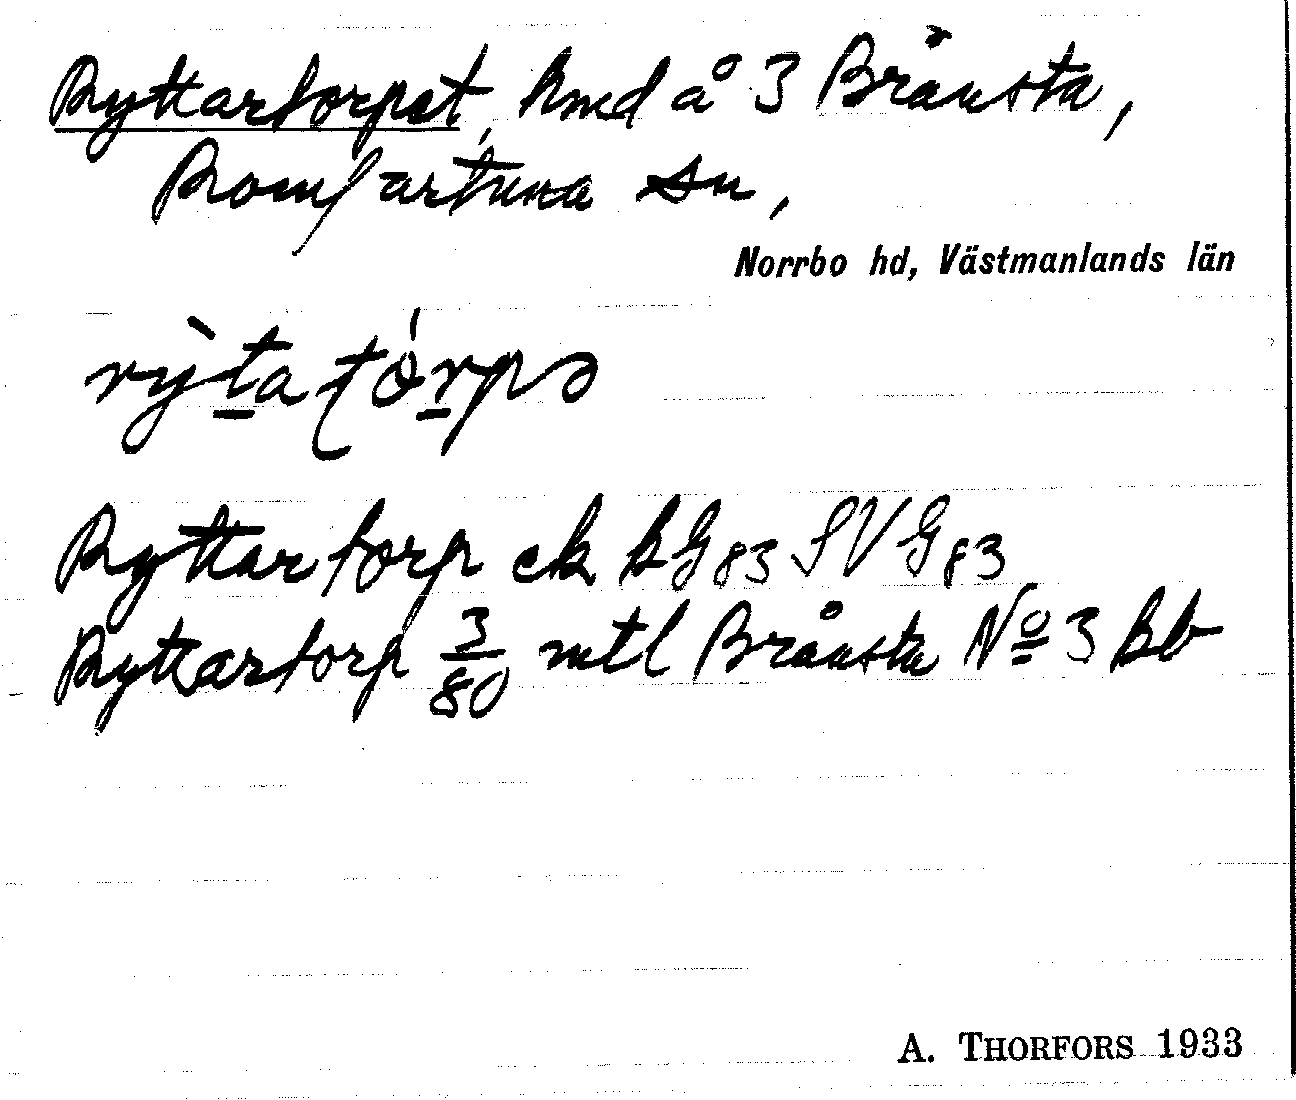 Ryttartorpet, hmd å 3 Brånsta,
Romfartuna sn,
Norrbo hd, Västmanlands län
rỳta tórpə
Ryttartorp ek kG83 SVG83
Ryttartorp 3/80 mtl Brånsta Nº 3 Bb
A. THORFORS 1933